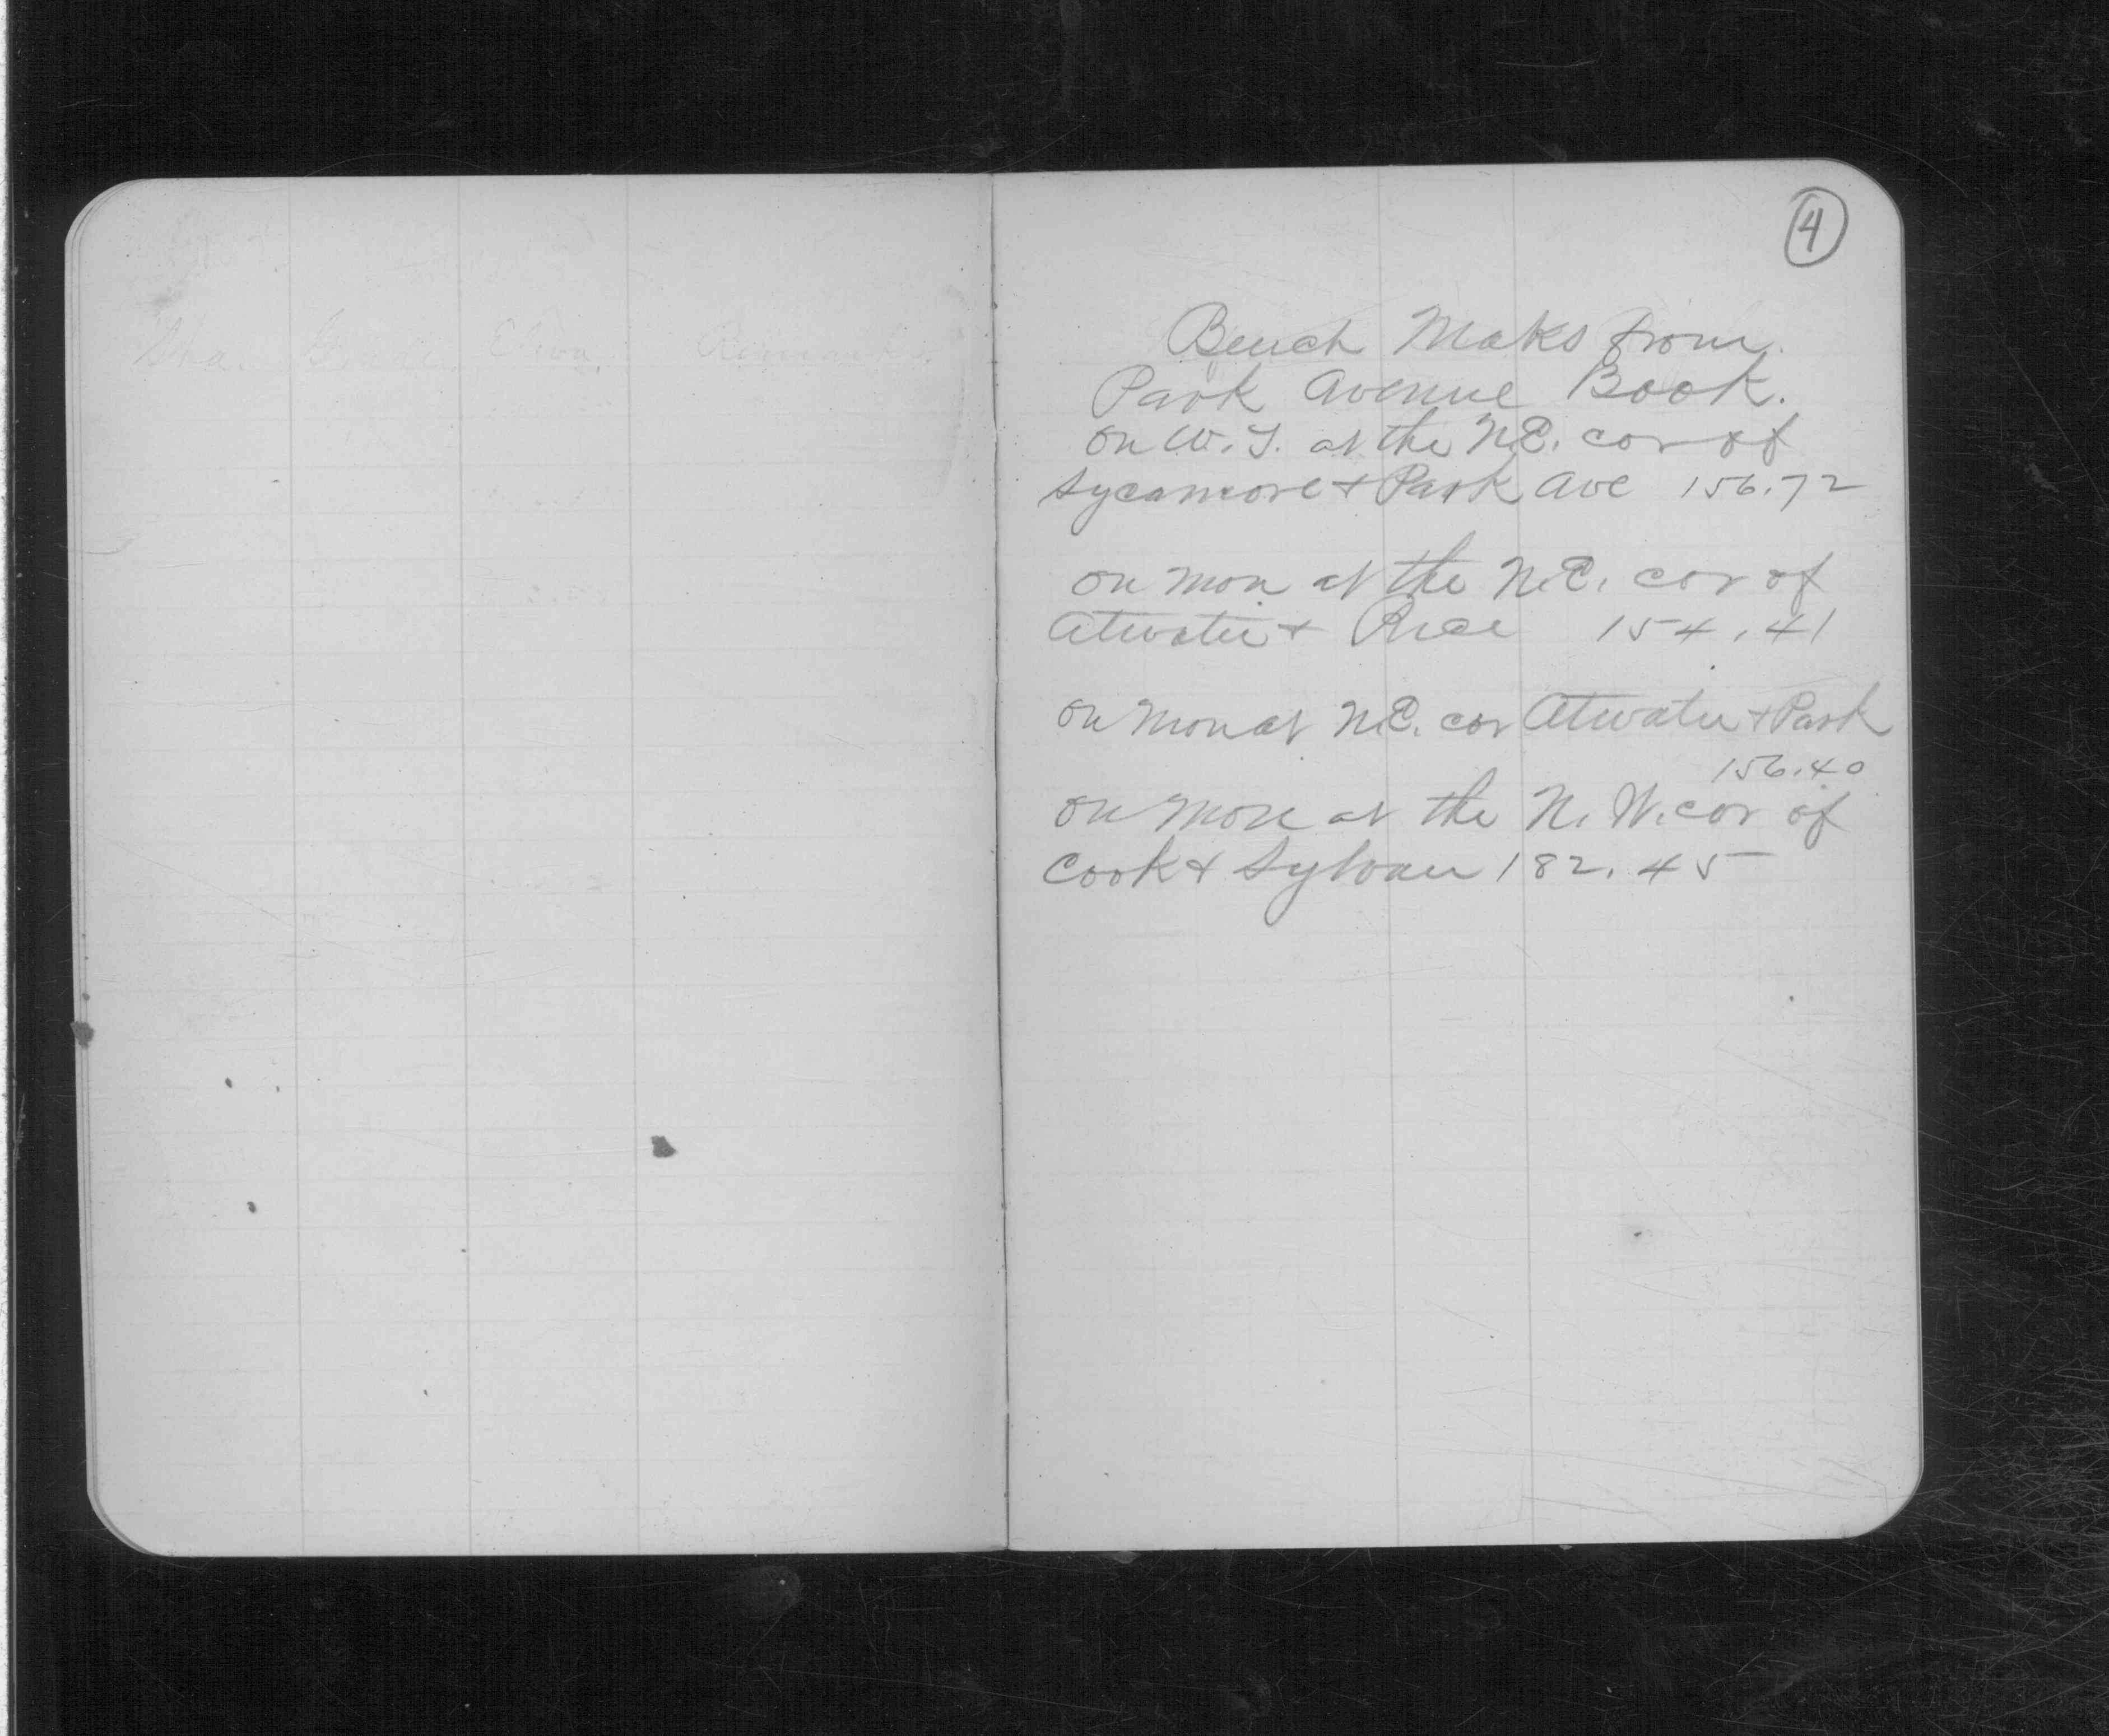 Sta. Grade Elva. Remarks.
4
Bench Maks from
Park Avenue Book.
on W.T. at the N.E. cor of
Sycamore + Park Ave 156.72
on Mon at the N.E. cor of
Atwater + Rice 154.41
on Mon at N.E. cor Atwater + Park
156.40
on Mon at the N.W. cor of
Cook + Sylvan 182.45